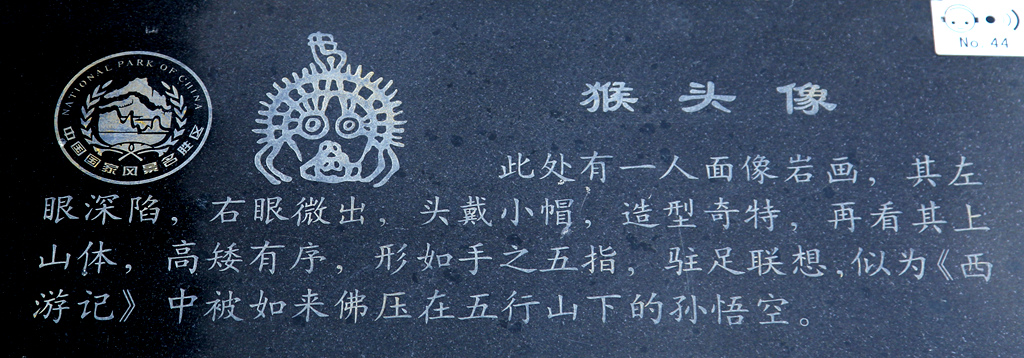 No. 44
NATIONAL PARK OF CHINA
中国国家风景名胜区
猴头像
此处有一人面像岩画，其左
眼深陷，右眼微出，头戴小帽，造型奇特，再看其上
山体，高矮有序，形如手之五指，驻足联想，似为《西
游记》中被如来佛压在五行山下的孙悟空。